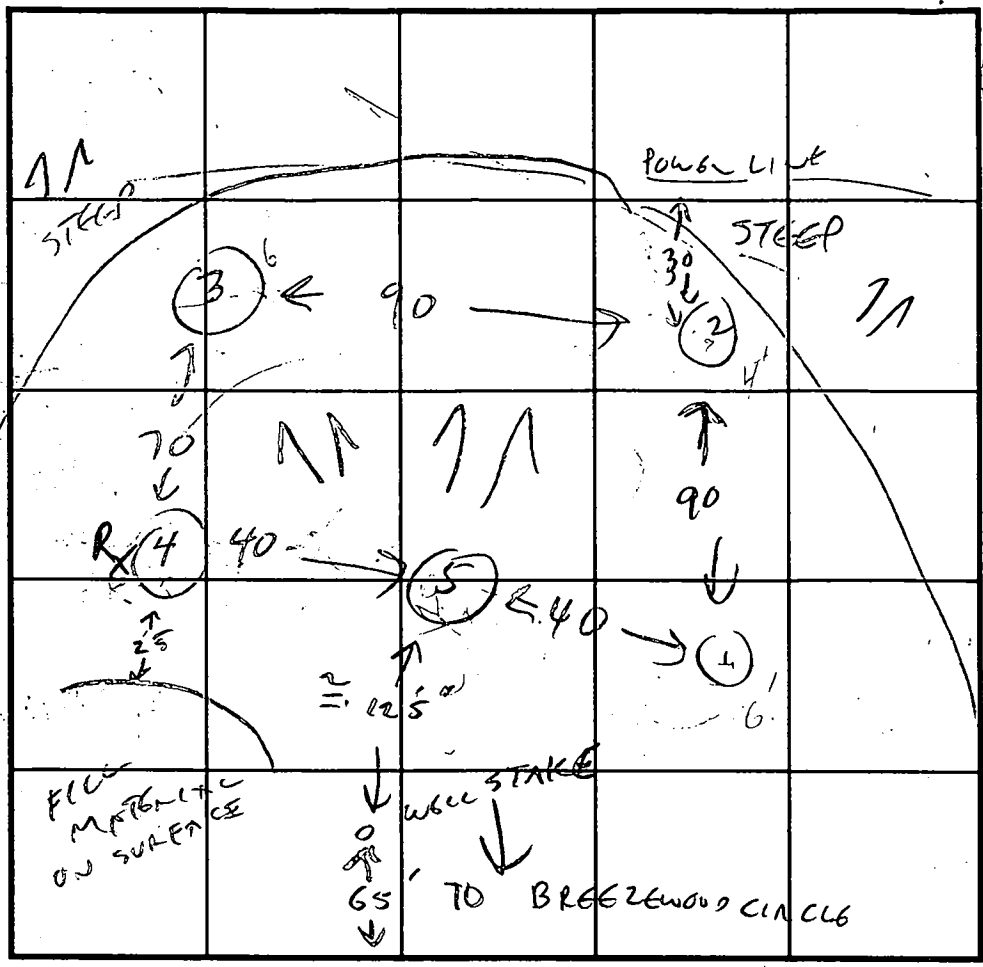 POWER LINE
STEEP
STEEP
30
3 6
← 90 →
2
4'
70
90
Rx 4 40 → 5 ← 40 →
25
1
≅ 125'
6'
FILL
MATERIAL
ON SURFACE
WELL STAKE
0
65' TO BREEZEWOOD CIRCLE